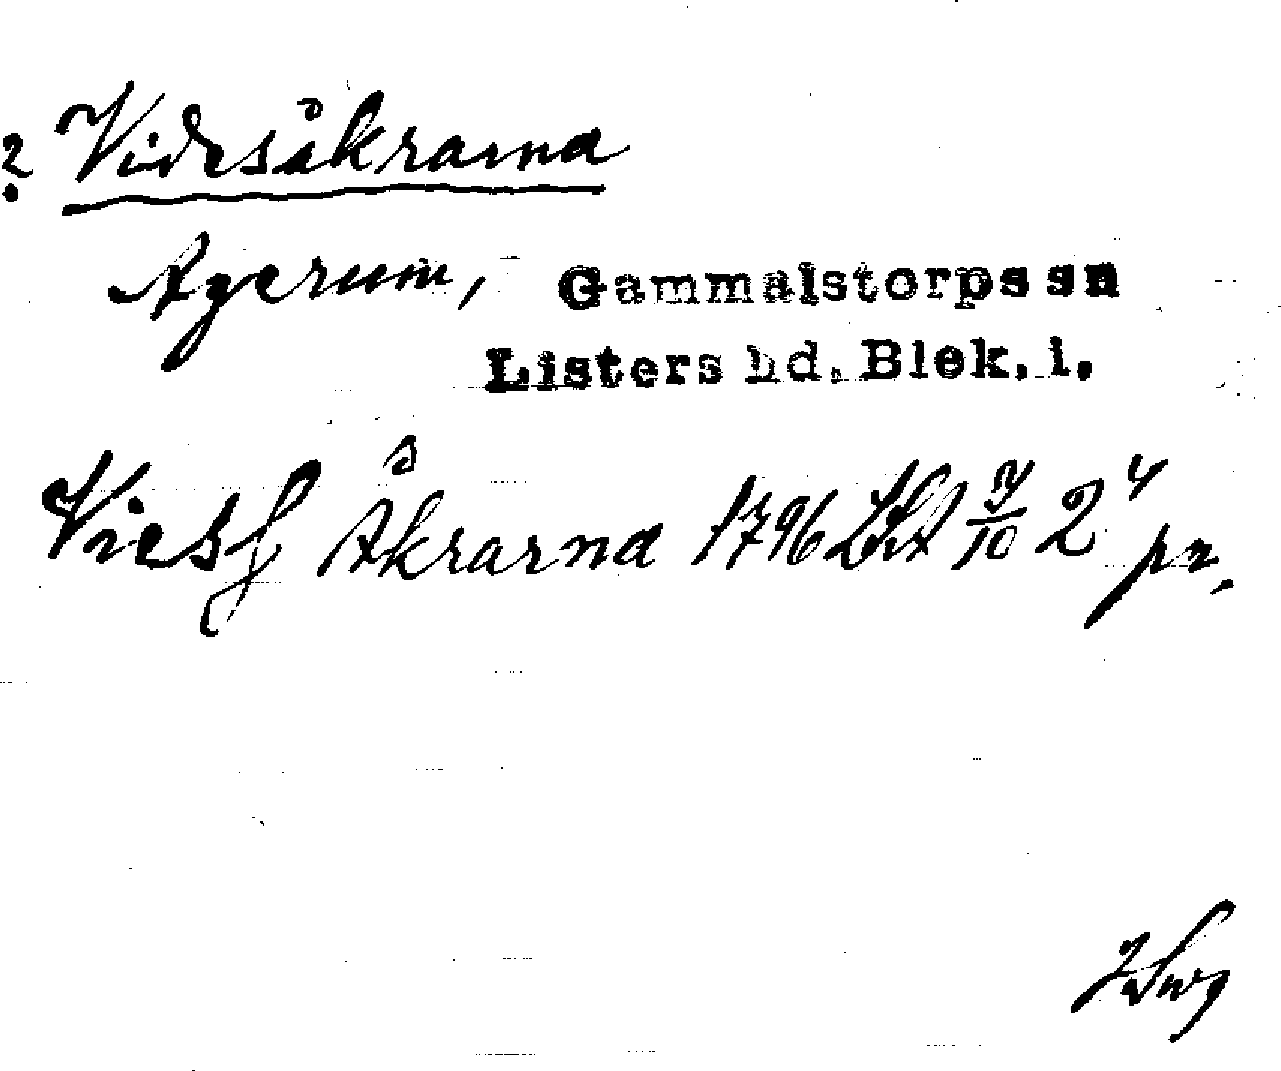 ? Videsåkrarna
Agerum, Gammalstorps sn
Listers hd. Blek. l.
Viesß Åkrarna 1796 9/10 2 4 pr.